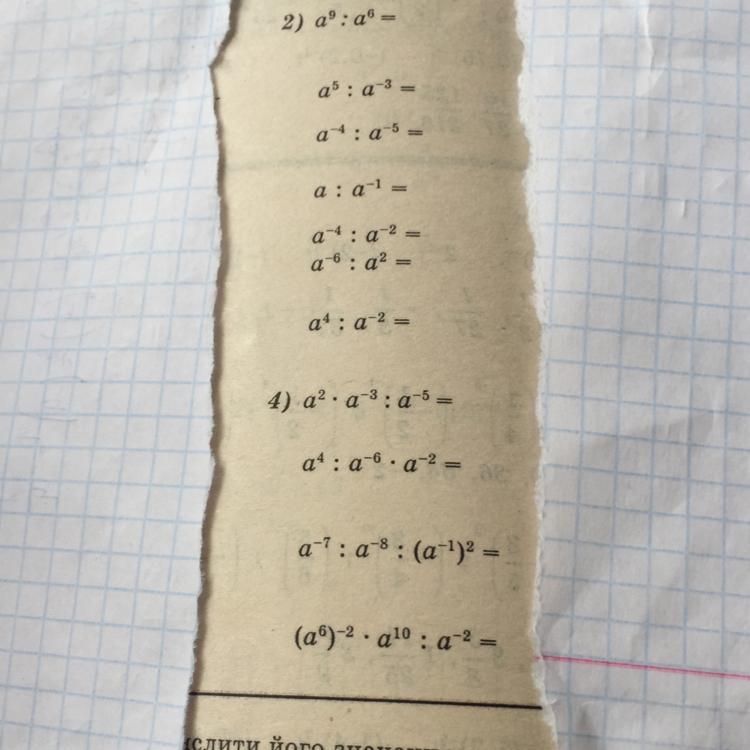 2) a⁹ : a⁶ =
a⁵ : a⁻³ =
a⁻⁴ : a⁻⁵ =
a : a⁻¹ =
a⁻⁴ : a⁻² =
a⁻⁶ : a² =
a⁴ : a⁻² =
4) a² · a⁻³ : a⁻⁵ =
a⁴ : a⁻⁶ · a⁻² =
a⁻⁷ : a⁻⁸ : (a⁻¹)² =
(a⁶)⁻² · a¹⁰ : a⁻² =
його